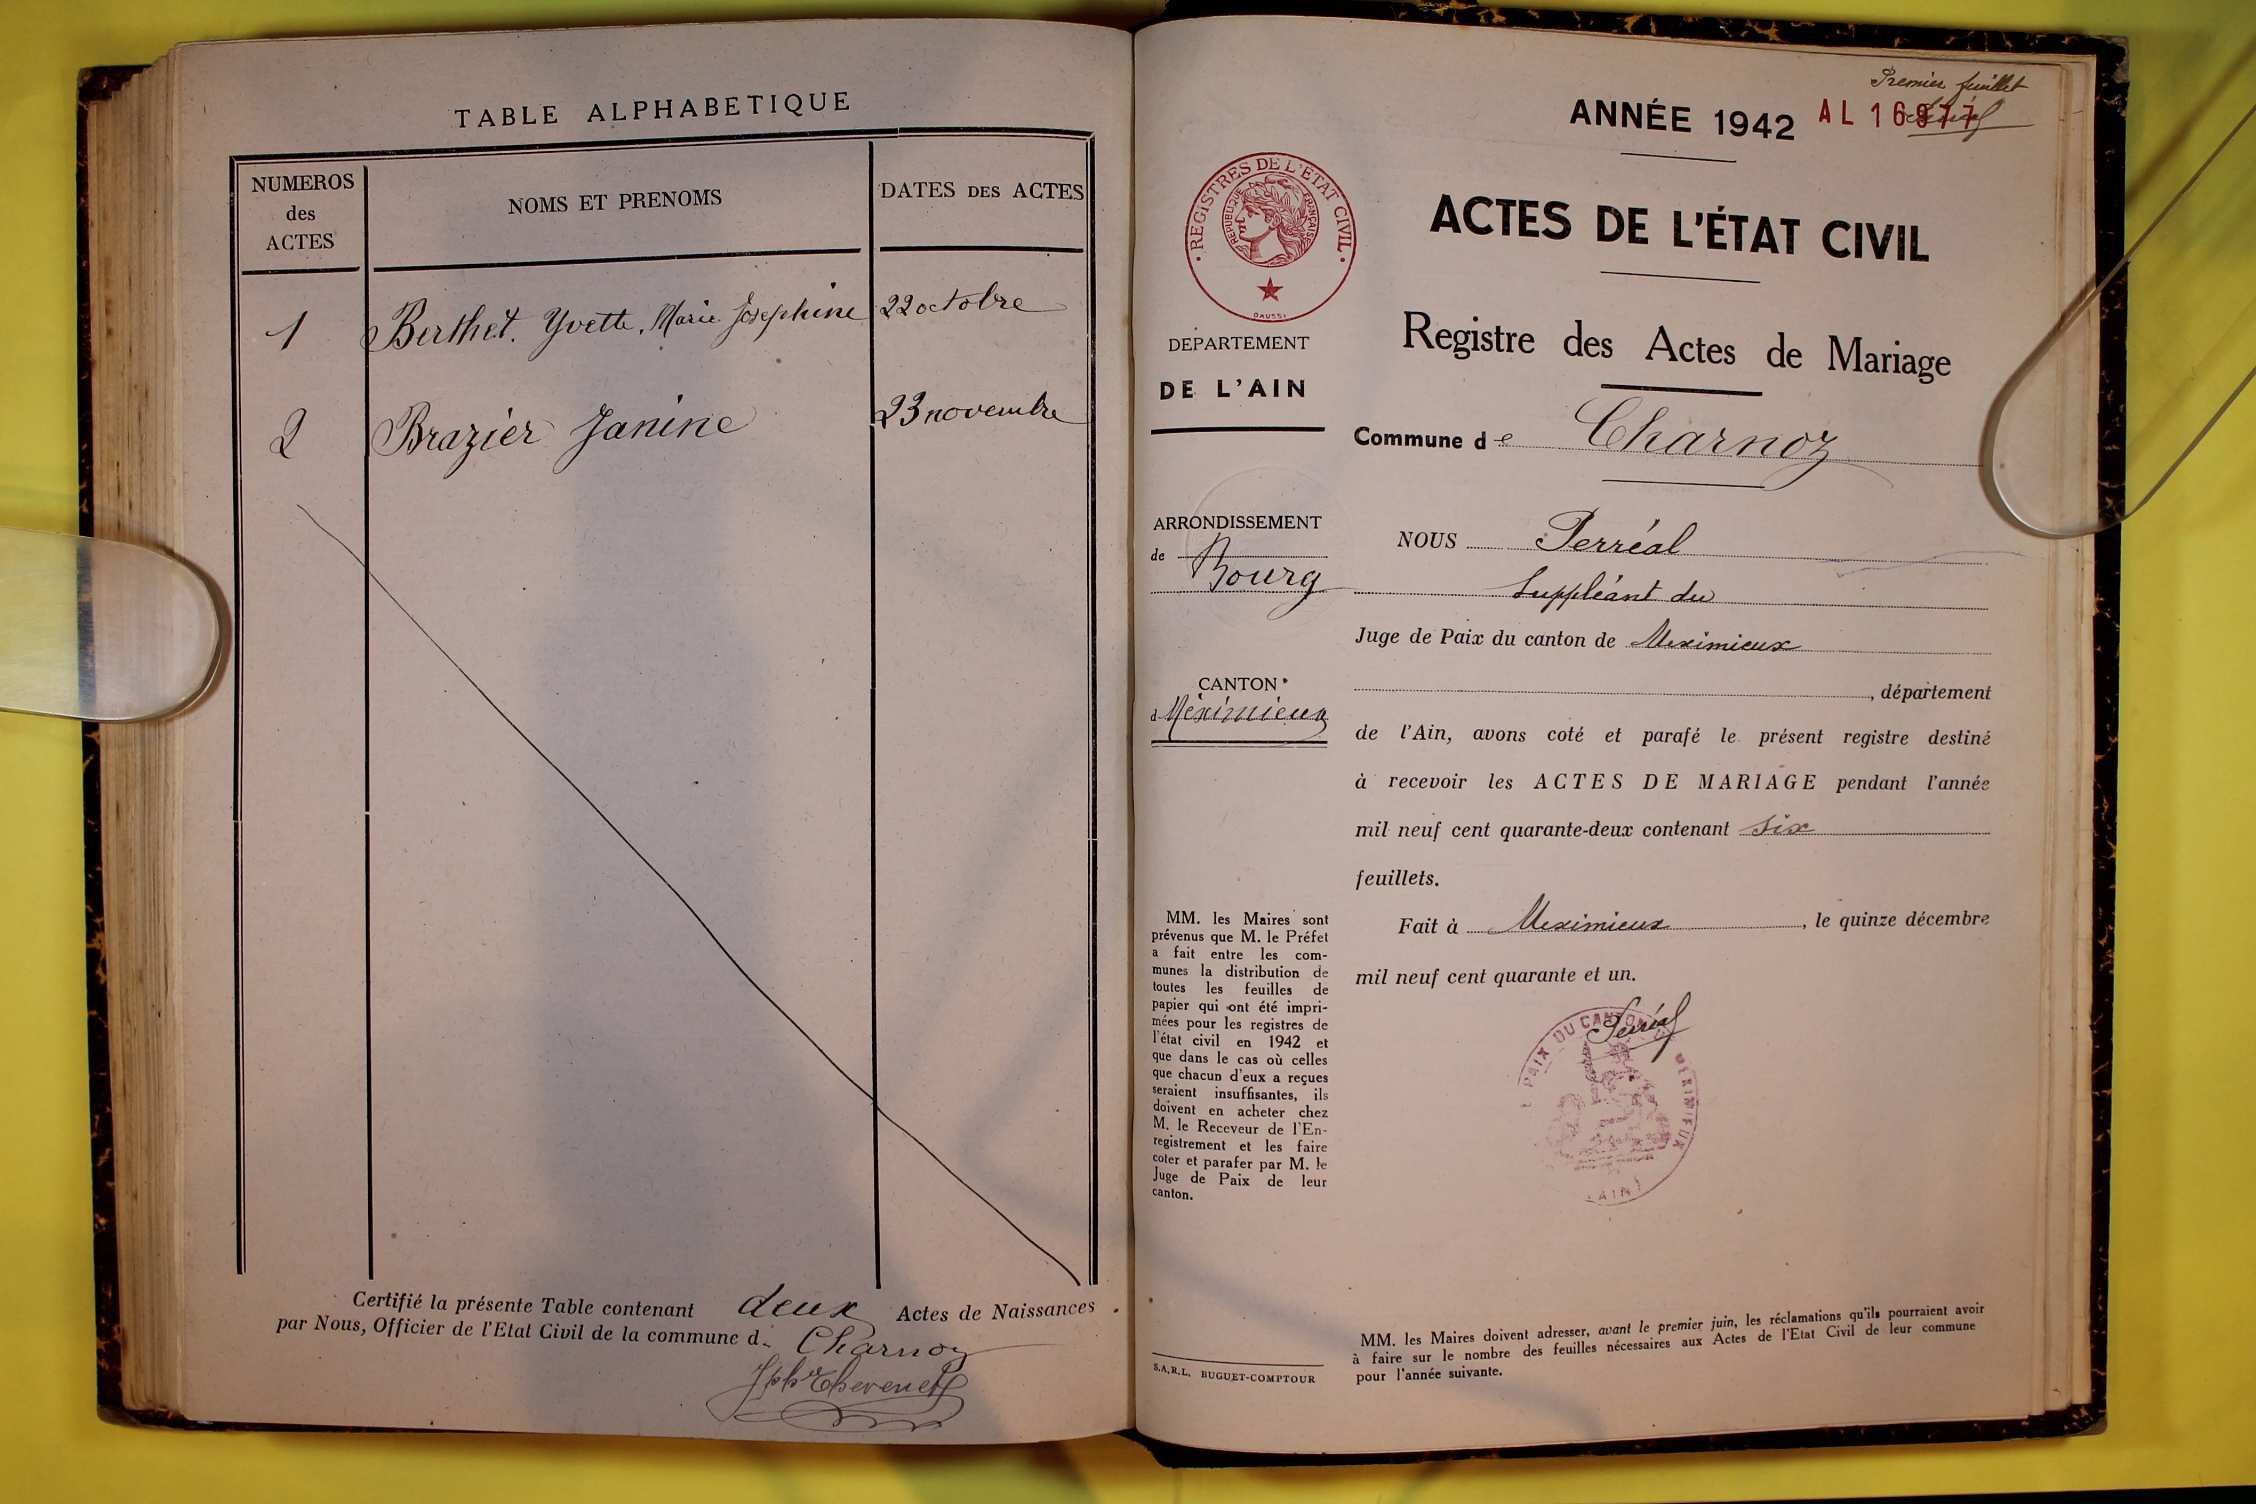 TABLE ALPHABETIQUE
NUMEROS
des
ACTES
NOMS ET PRENOMS
DATES DES ACTES
1 Berthet Yvette, Marie Josephine 22 octobre
2 Brazier Janine 23 novembre
Certifié la présente Table contenant deux Actes de Naissances
par Nous, Officier de l'Etat Civil de la commune d. Charnoz
Premier feuillet
ANNÉE 1942
AL 16977
REGISTRES DE L'ETAT CIVIL
REPUBLIQUE FRANÇAISE
DAUSSI
ACTES DE L'ÉTAT CIVIL
Registre des Actes de Mariage
DEPARTEMENT
DE L'AIN
Commune de Charnoz
ARRONDISSEMENT
de Bourg
CANTON
d Meximieux
NOUS Perréal
Suppléant du
Juge de Paix du canton de Meximieux
, département
de l'Ain, avons coté et parafé le présent registre destiné
à recevoir les ACTES DE MARIAGE pendant l'année
mil neuf cent quarante-deux contenant six
feuillets.
Fait à Meximieux, le quinze décembre
mil neuf cent quarante et un.
PAIX DU CANTON
MERIMIEUX
(AIN)
MM. les Maires sont
prévenus que M. le Préfet
a fait entre les com-
munes la distribution de
toutes les feuilles de
papier qui ont été impri-
mées pour les registres de
l'état civil en 1942 et
que dans le cas où celles
que chacun d'eux a reçues
seraient insuffisantes, ils
doivent en acheter chez
M. le Receveur de l'En-
registrement et les faire
coter et parafer par M. le
Juge de Paix de leur
canton.
S.A.R.L. BUGUET-COMPTOUR
MM. les Maires doivent adresser, avant le premier juin, les réclamations qu'ils pourraient avoir
à faire sur le nombre des feuilles nécessaires aux Actes de l'Etat Civil de leur commune
pour l'année suivante.